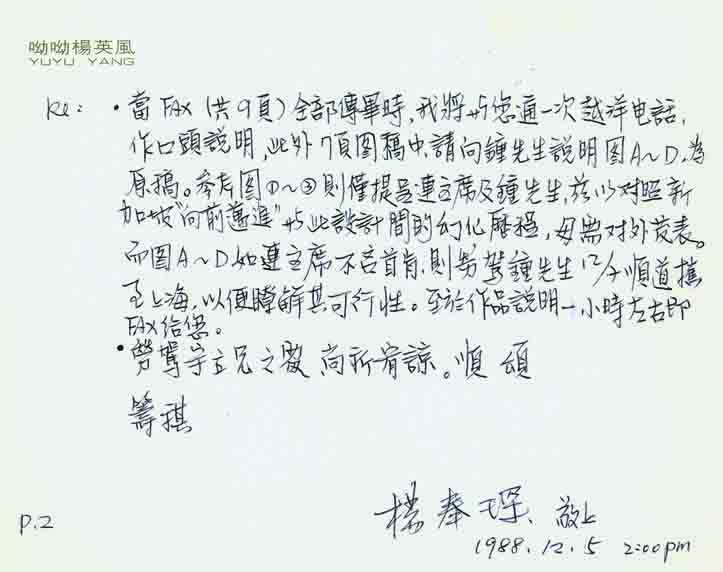 呦呦楊英風
YUYU YANG
Re: ・當FAX(共9頁)全部傳畢時,我將与您通一次越洋电話,
作口頭說明,此外7頁图稿中,請向鍾先生說明图A~D,為
原稿。參考图①~③則僅提呈連主席及鍾先生,茲以对照新
加坡"向前邁進"与此設計間的幻化歷程,毋需对外发表。
而图A~D如連主席不吝首肯,則勞駕鍾先生12/7順道攜
至上海,以便瞭解其可行性。至於作品說明一小時左右即
FAX給您。
・勞駕宇立兄之處 尚祈宥諒。順 頌
籌祺
楊奉琛、敬上
1988.12.5 2:00pm
P.2